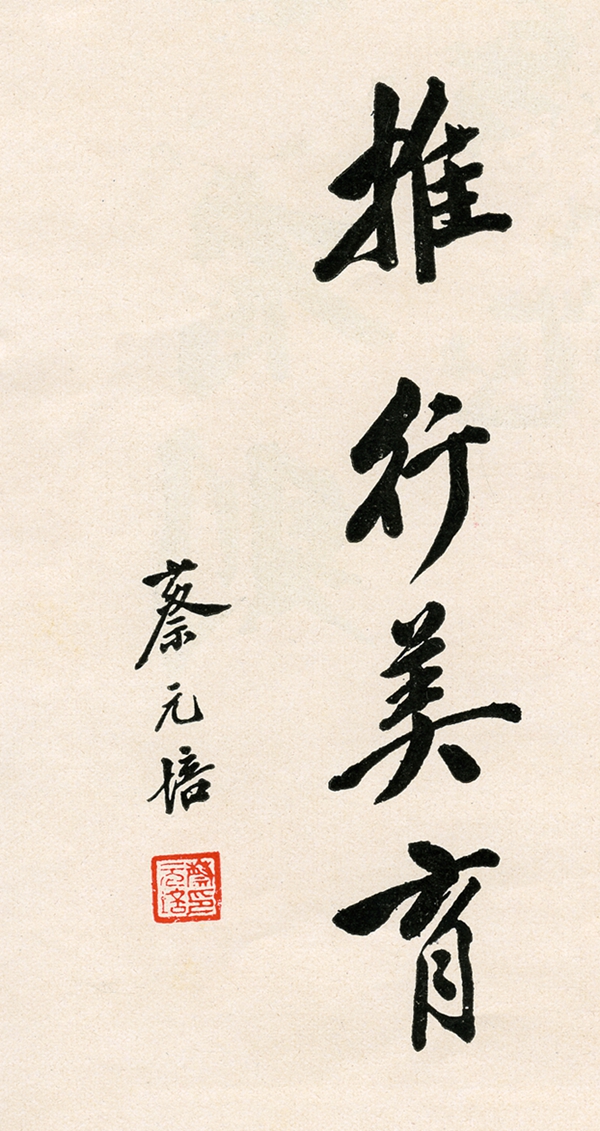 推行美育
蔡元培
蔡印元培